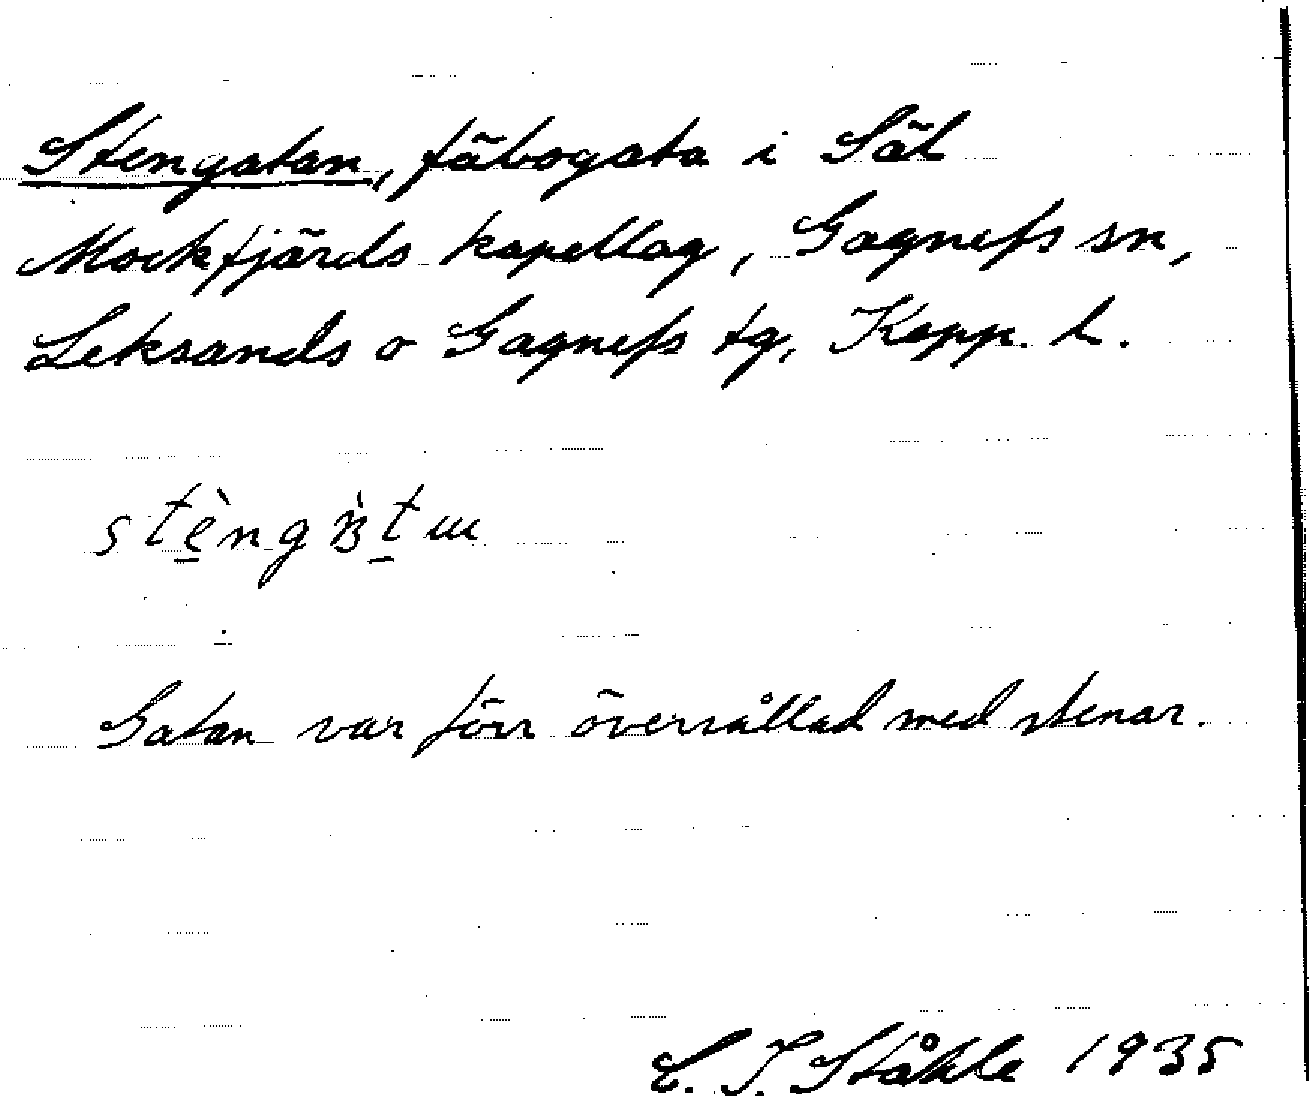 Stengatan, fäbogata i Säl
Mockfjärds kapellag, Gagnefs sn,
Leksands o Gagnefs tg, Kopp. l.
Gatan var förr översållad med stenar.
C. I. Ståhle 1935